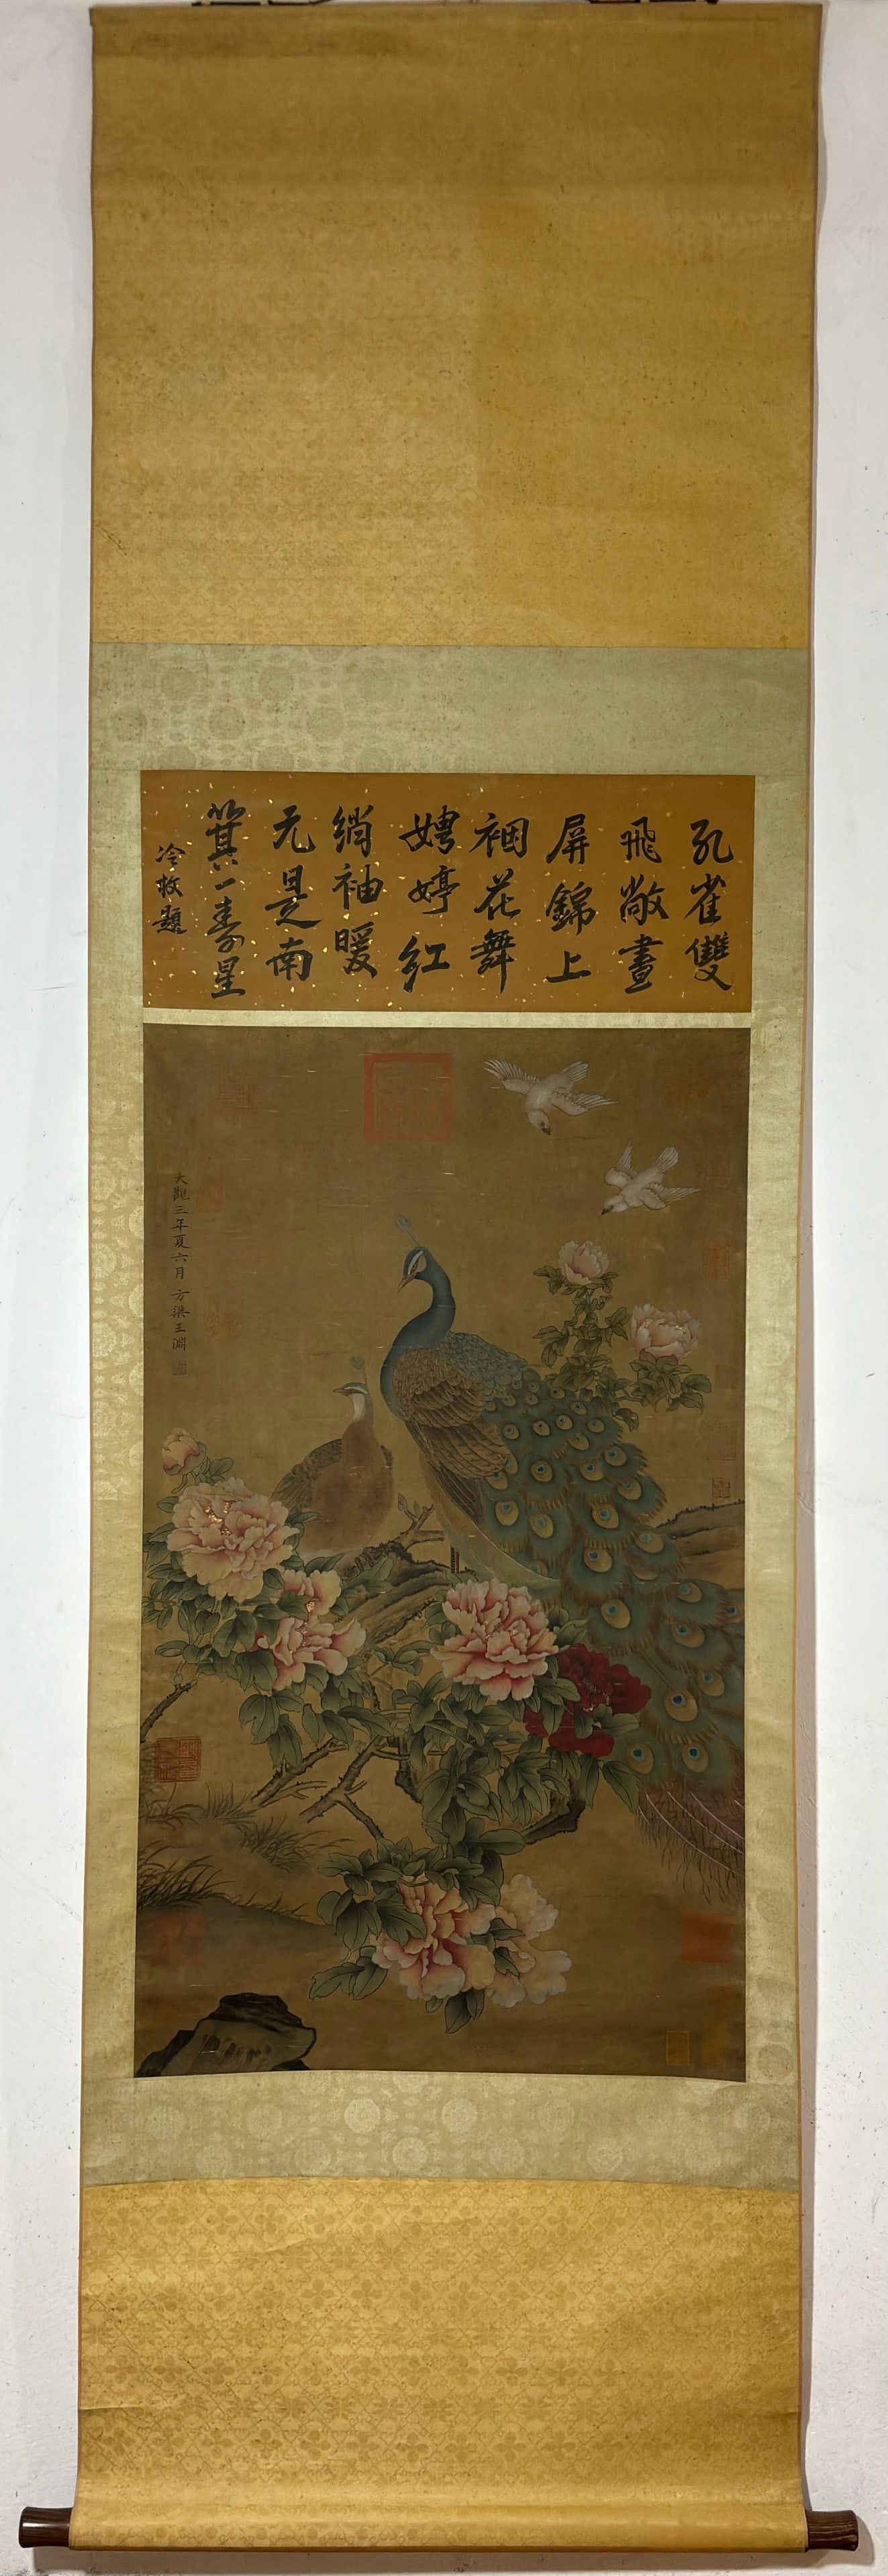 孔雀雙
飛敞畫
屏錦上
裀花舞
娉婷紅
綃袖暖
元是南
箕一壽星
冷枚題
大觀三年夏六月方梁王淵